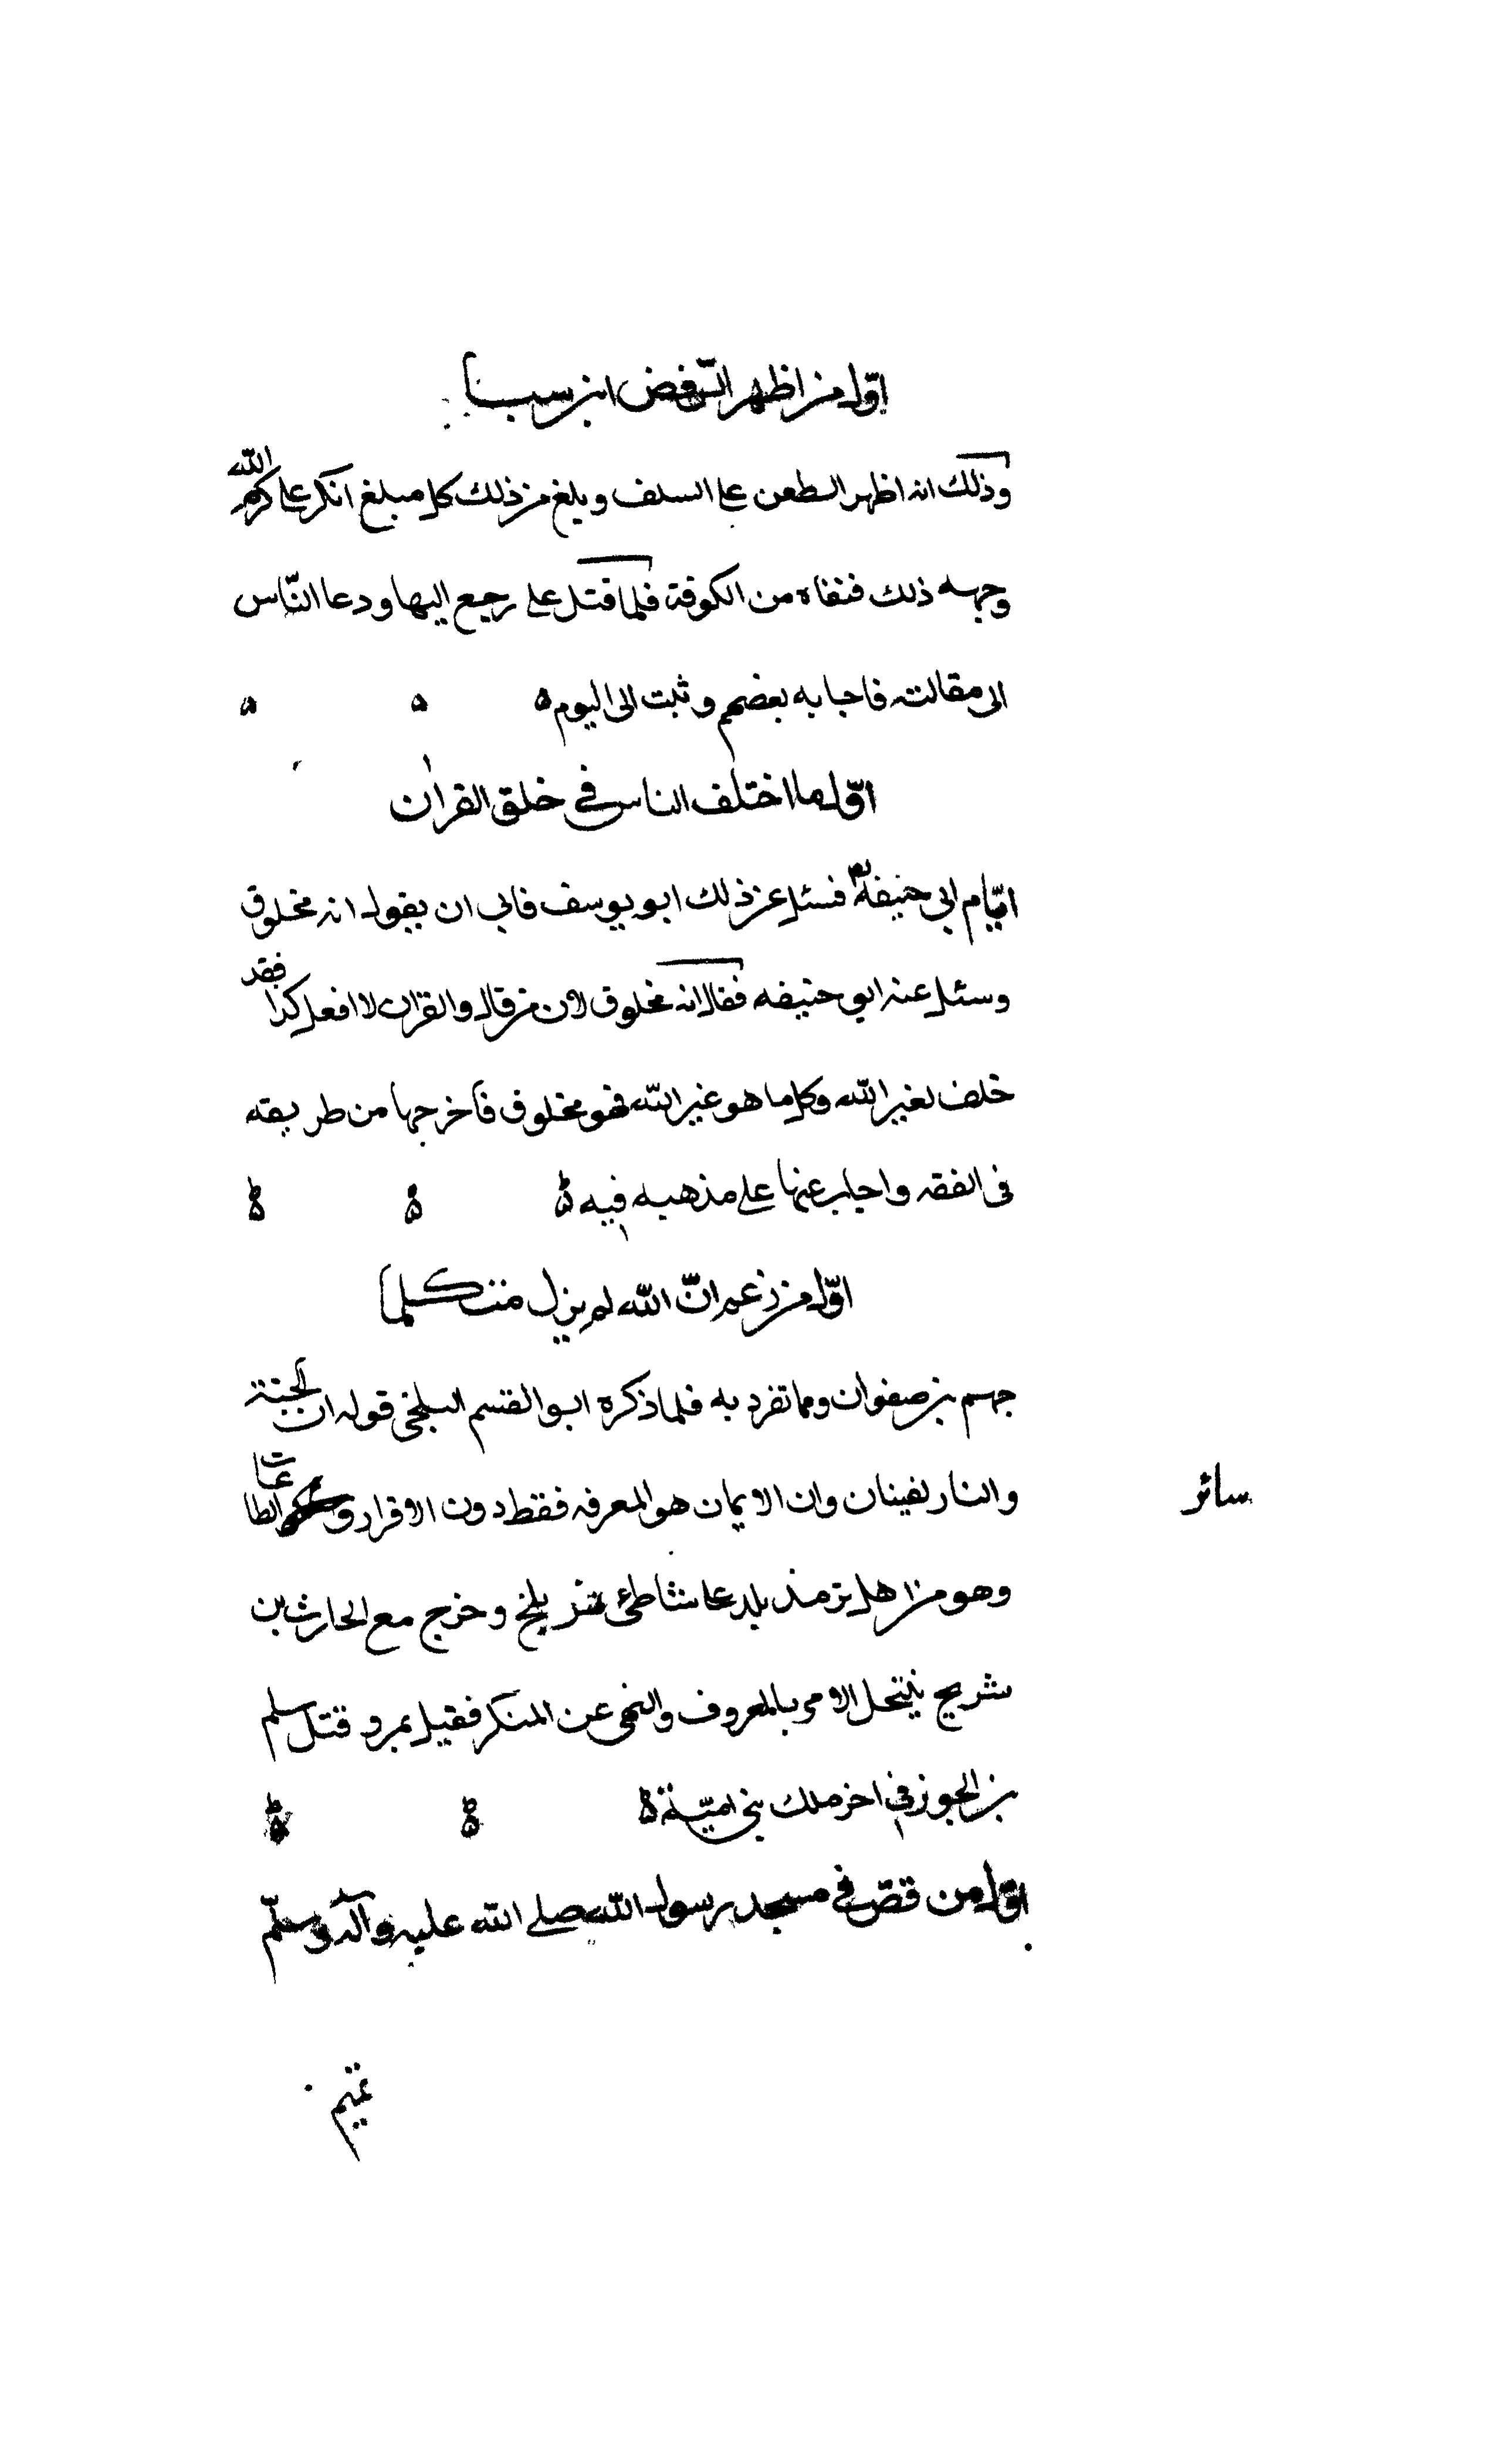 اوّل من اظهر الترفض ابن سبا
وذلك انه اظهر الطعن على السلف وبلغ من ذلك كل مبلغ انكر على كرم الله
وجهه ذلك فنفاه من الكوفة فلما قتل على رجع اليها ودعا النّاس
الى مقالته فاجابه بعضهم وثبت الى اليوم ه ه ه
اوّل ما اختلف الناس في خلق القران
ايّام ابي حنيفة فسئل عن ذلك ابو يوسف فابى ان يقول انه مخلوق
وسئل عنه ابو حنيفه فقال انه مخلوق لان من قال والقران لا افعل كذا فقد
حلف بغير الله وكل ما هو غير الله فهو مخلوق فاخرجها من طريقه
في الفقه واجاب عنها على مذهبه فيه
اوّل من زعم انّ الله لم يزل متكلما
جهم بن صفوان ومما تفرد به فلما ذكره ابو القسم البلخي قوله ان الجنة
والنار لفينان وان الايمان هو المعرفه فقط دون الاقرار و الطاعات
سائر
وهو من اهل ترمذ بلد على شاطئ بلخ وخرج مع الحارث بن
شريح ينتحل الامر بالمعروف والنهى عن المنكر فقيل بمرو قتل سلم
بن الجوز في اخر ملك بني اميّة
اوّل من قصّ في مسجد رسول الله صلى الله عليه وآله وسلّم
تميم